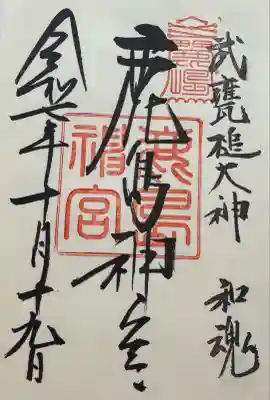 武甕槌大神 和魂
鹿島神宮
鹿島
神宮
令和元年十月十九日